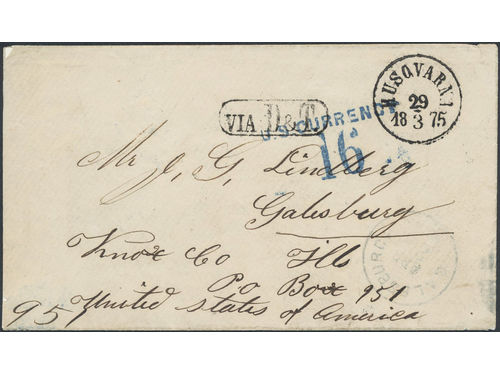 HUSQVARNA
29
18 3 75
VIA D&T.
U.S.CURRENCY
16
Mr J. G. Lindberg
Galesburg
Knox Co Ills
P.o Box 951
95 United states of America